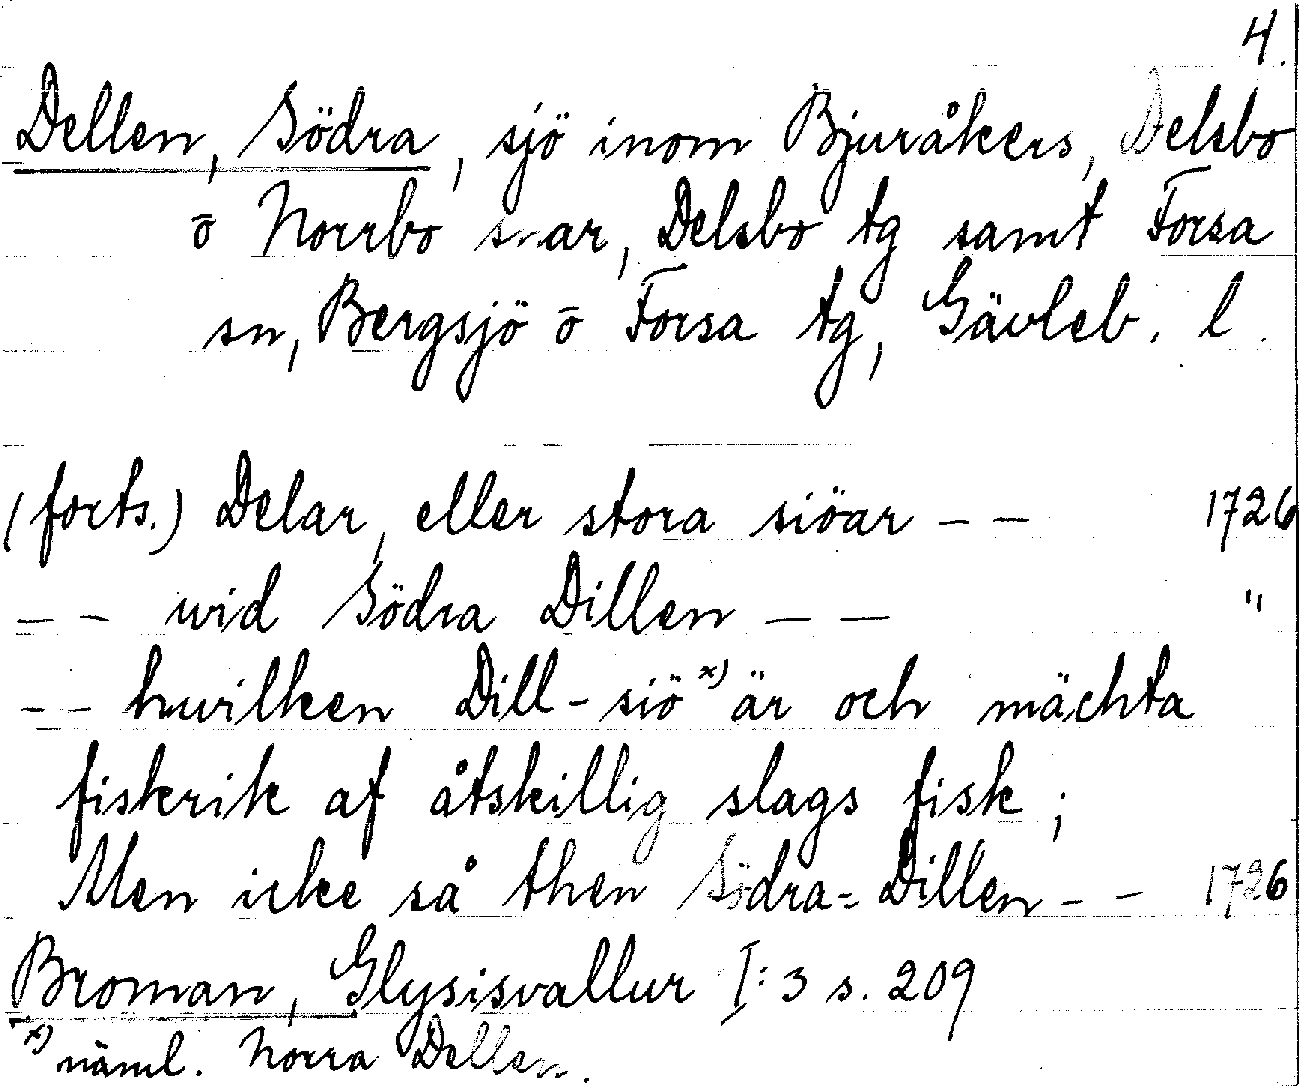 4.
Dellen, Södra, sjö inom Bjuråkers, Delsbo
o Norrbo snar, Delsbo tg samt Forsa
sn, Bergsjö o Forsa tg, Gävleb. l.
(forts.) Delar, eller stora siöar – – 1726
– – wid Södra Dillen – – "
– – hwilken Dill-siö x) är och mächta
fiskrik af åtskillig slags fisk;
Men icke så then Södra= Dillen – – 1726
Broman, Glysisvallur I:3 s. 209
x) näml. Norra Dellen.